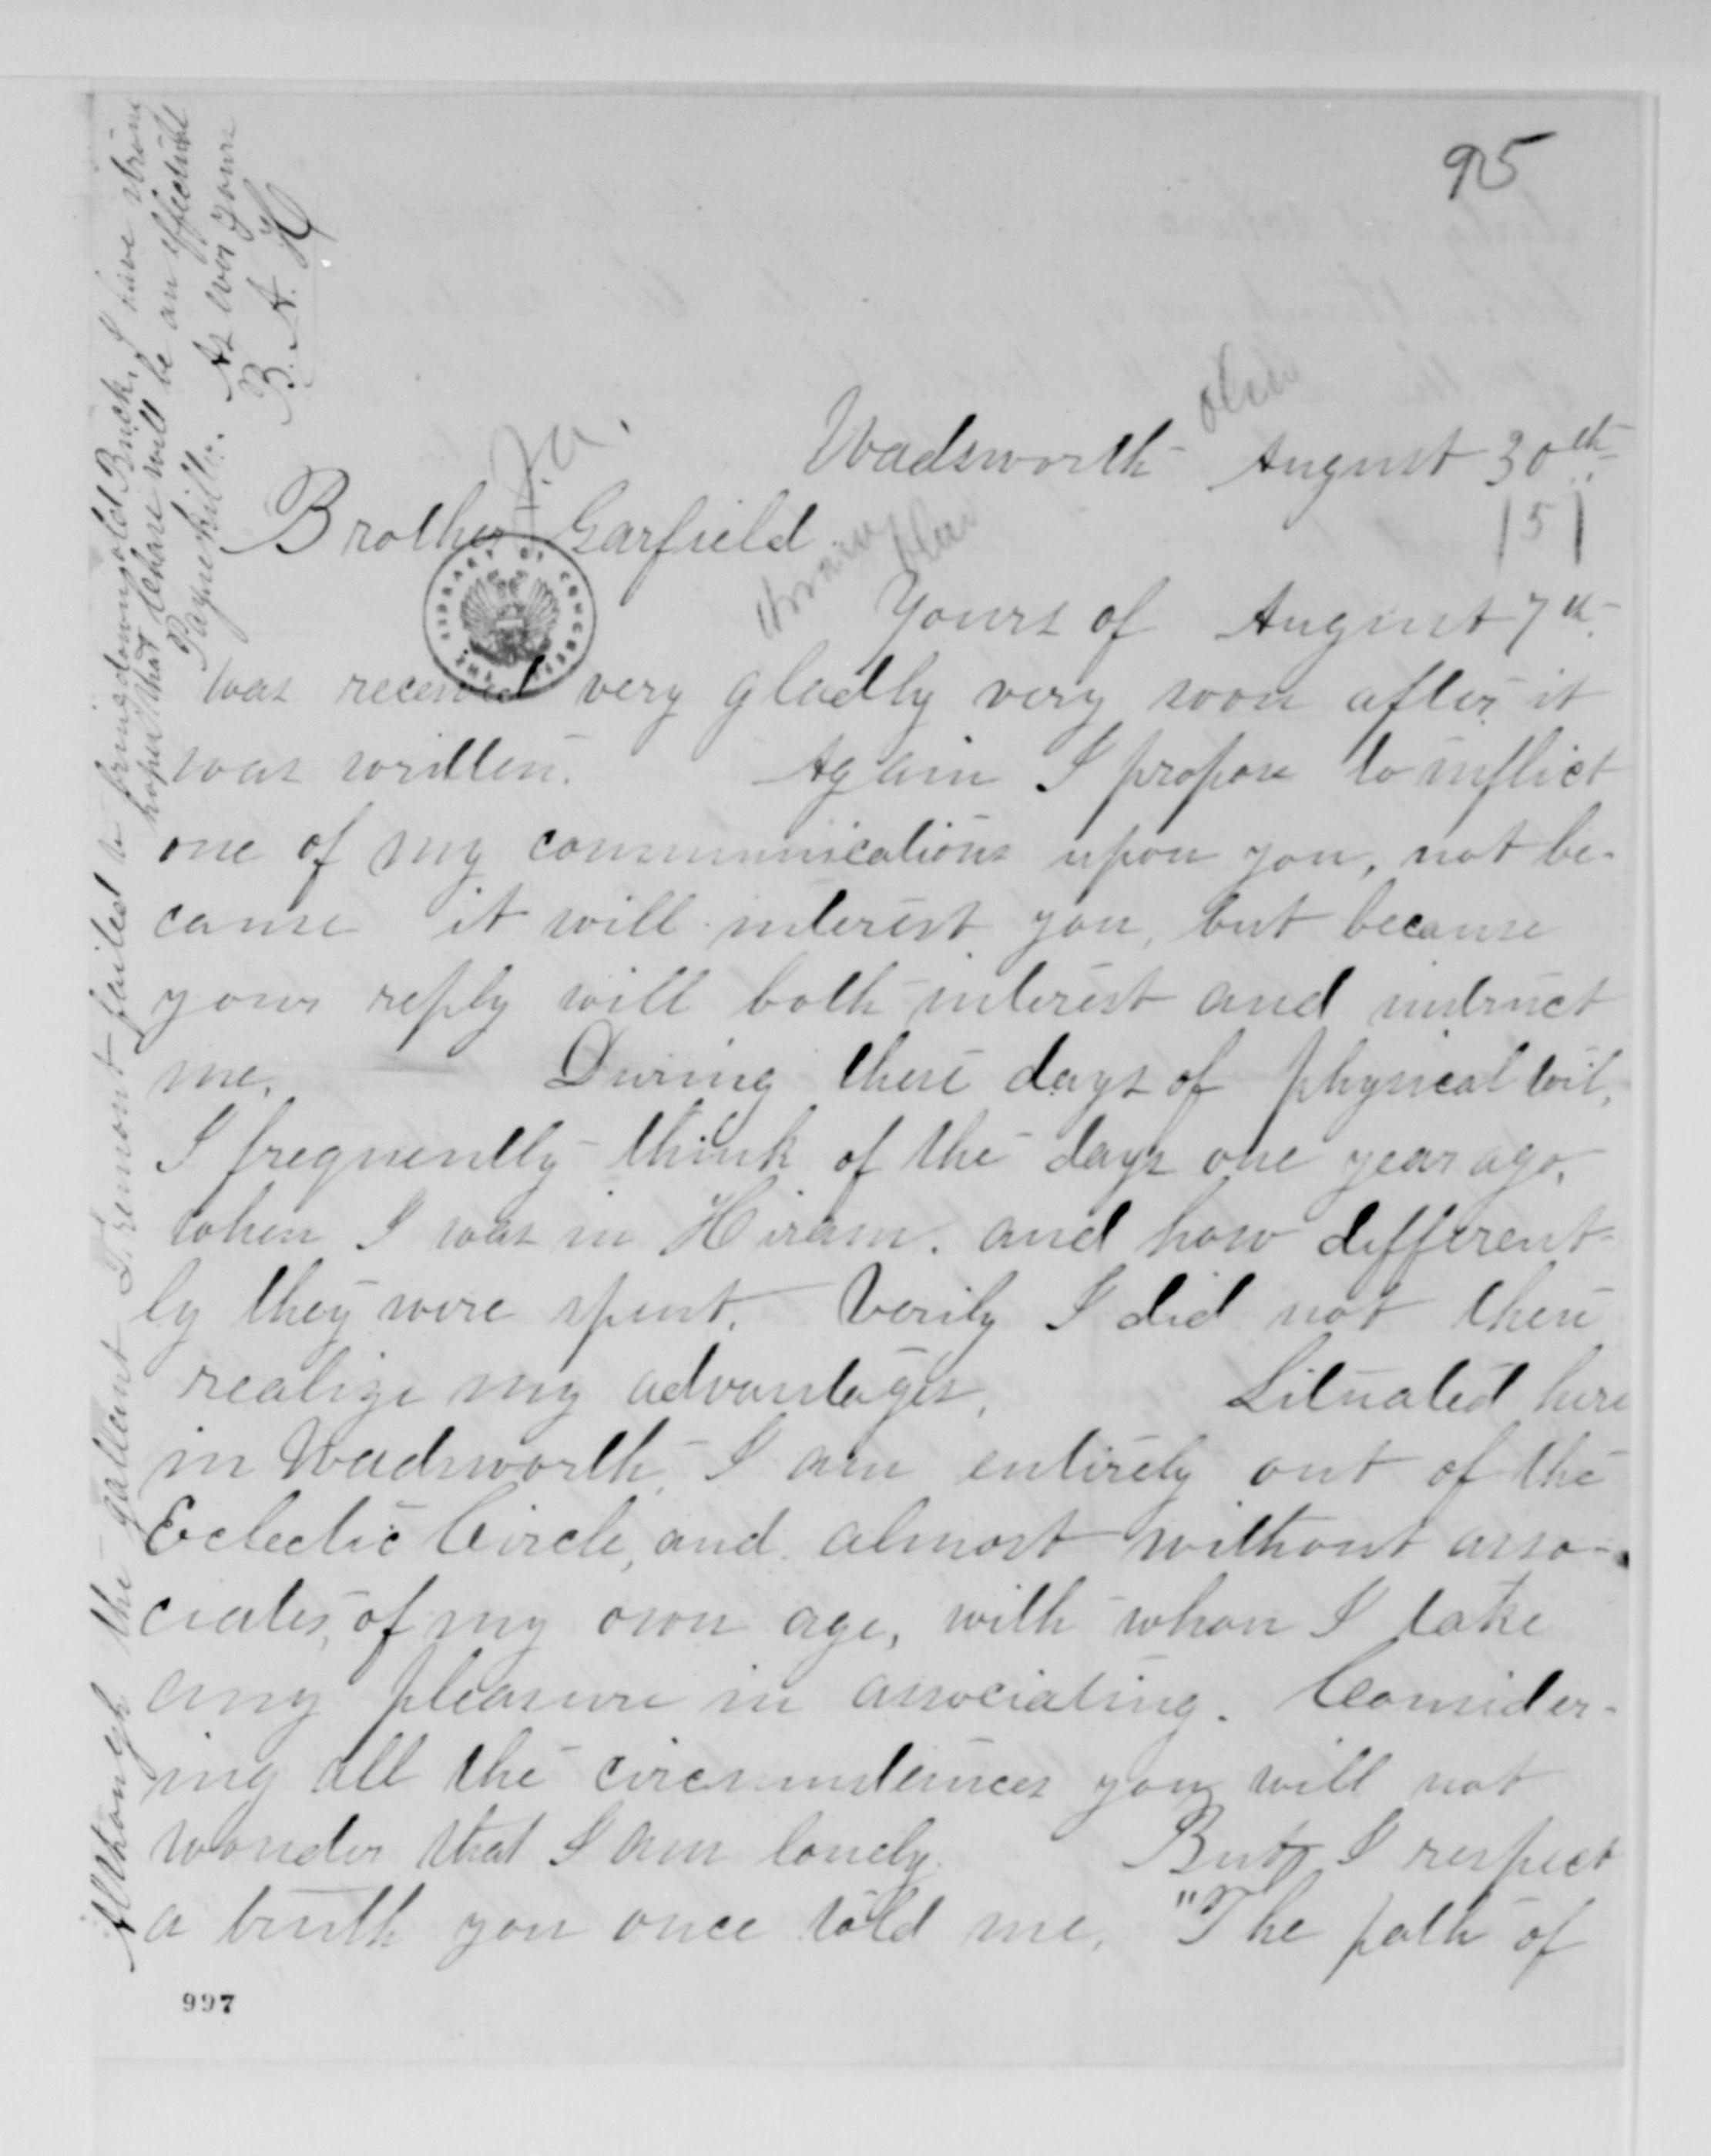 95
Wadsworth August 30th
Brother Garfield
J. A.
Yours of August 7th
was received very gladly very soon after it
was written. Again I propose to inflict
one of my communications upon you, not be-
cause it will interest you, but because
your reply will both interest and instruct
me. During these days of physical toil,
I frequently think of the days one year ago,
when I was in Hiram. and how different-
ly they were spent. Verily I did not then
realize my advantages. Situated here
in Wadsworth, I am entirely out of the
Eclectic Circle, and almost without asso-
ciates, of my own age, with whom I take
any pleasure in associating. Consider-
ing all the circumstances you will not
wonder that I am lonely. But I respect
a truth you once told me, "The path of
997
Although the gallant Fremont failed to bring down old Buck, I have strong
hopes that Chase will be an effectual
Payne killer.
As ever yours
B. A. H
THE LIBRARY OF CONGRESS